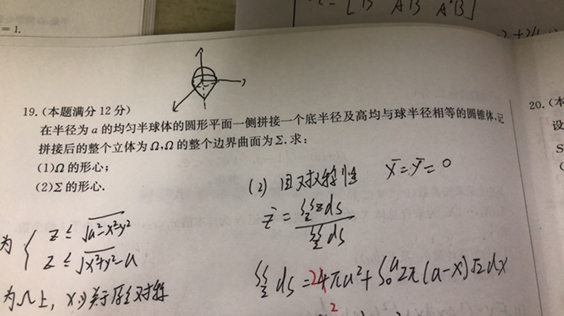 = 1.
19.(本题满分 12 分)
在半径为 a 的均匀半球体的圆形平面一侧拼接一个底半径及高均与球半径相等的圆锥体,记
拼接后的整个立体为 Ω,Ω 的整个边界曲面为 Σ. 求:
(1)Ω 的形心;
(2)Σ 的形心.
20.(本
设
S
(2) 因对称性 x̄=ȳ=0
z̄ = ∯zds / ∯ds
为 { z ≤ √a²-x²-y²
z ≤ √x²+y²-a
∯ ds = 24πa² + ∫₀ᵃ 2π(a-x)√2dx
2